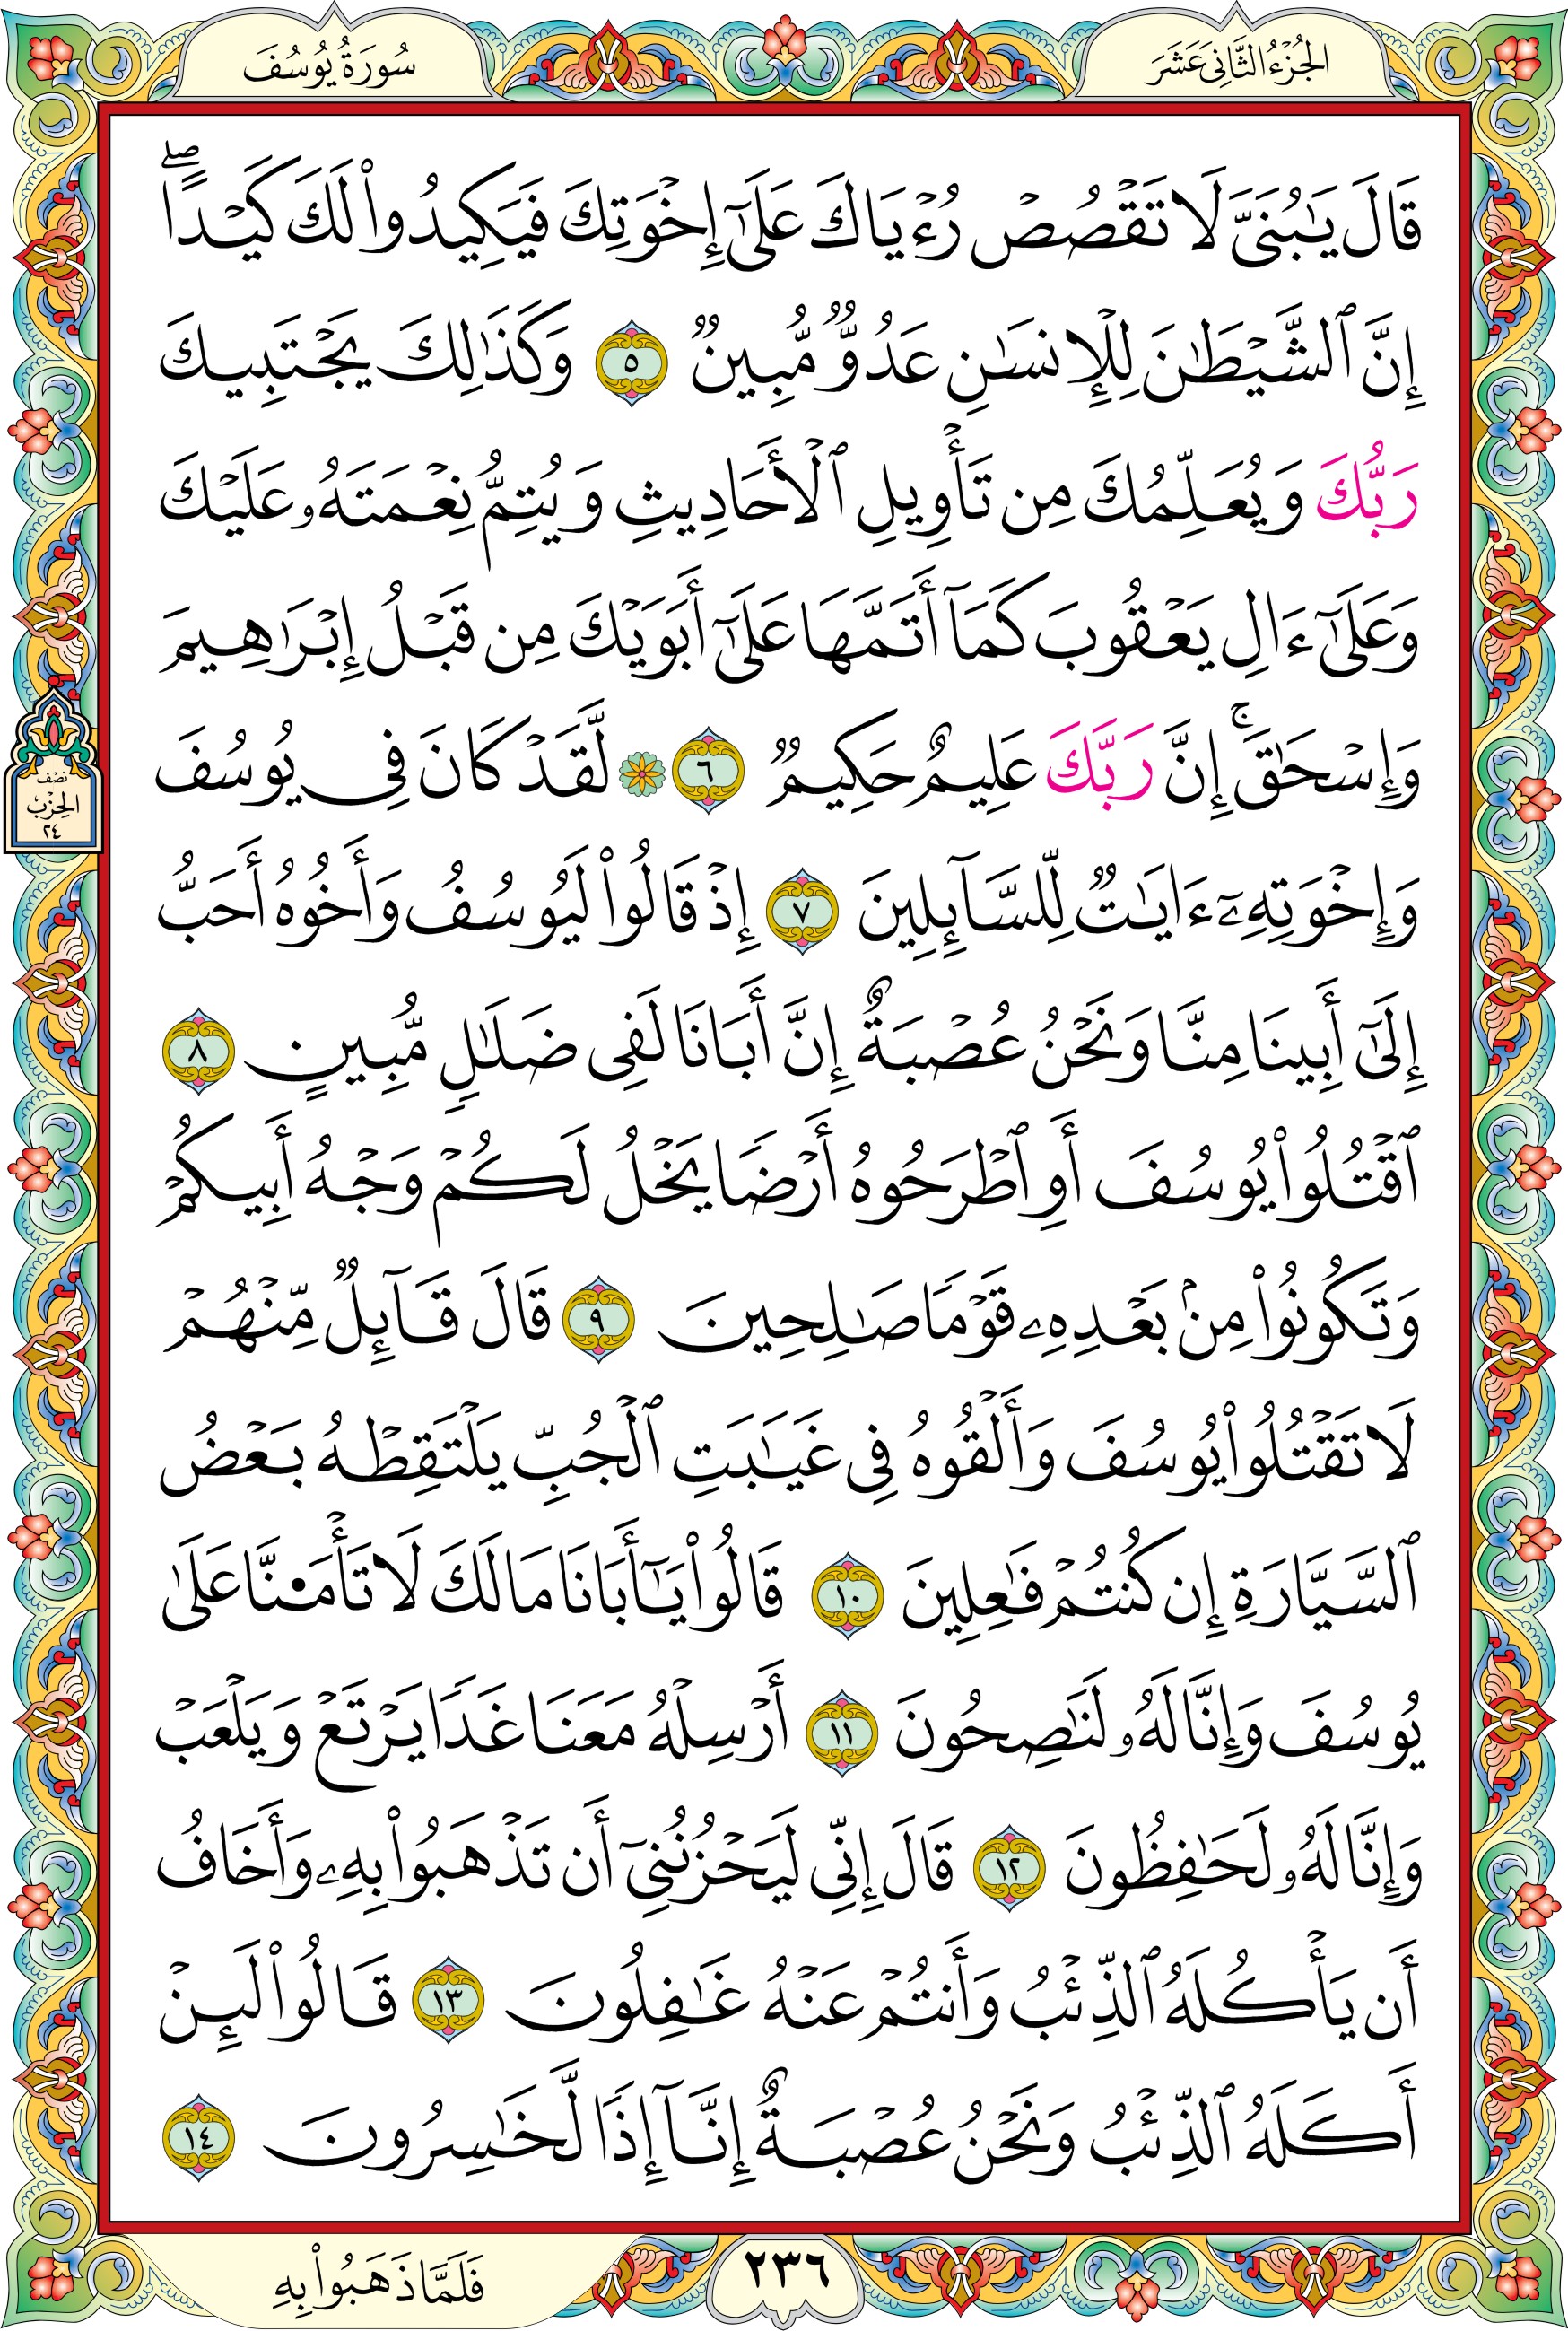 الجُزْءُ الثَّانِي عَشَرَ
سُورَةُ يُوسُفَ
قَالَ يَٰبُنَىَّ لَا تَقْصُصْ رُءْيَاكَ عَلَىٰٓ إِخْوَتِكَ فَيَكِيدُوا۟ لَكَ كَيْدًا ۖ
إِنَّ ٱلشَّيْطَٰنَ لِلْإِنسَٰنِ عَدُوٌّ مُّبِينٌ ٥ وَكَذَٰلِكَ يَجْتَبِيكَ
رَبُّكَ وَيُعَلِّمُكَ مِن تَأْوِيلِ ٱلْأَحَادِيثِ وَيُتِمُّ نِعْمَتَهُۥ عَلَيْكَ
وَعَلَىٰٓ ءَالِ يَعْقُوبَ كَمَآ أَتَمَّهَا عَلَىٰٓ أَبَوَيْكَ مِن قَبْلُ إِبْرَٰهِيمَ
وَإِسْحَٰقَ ۚ إِنَّ رَبَّكَ عَلِيمٌ حَكِيمٌ ٦ ۞ لَّقَدْ كَانَ فِى يُوسُفَ
نصف
الحِزْب
٢٤
وَإِخْوَتِهِۦٓ ءَايَٰتٌ لِّلسَّآئِلِينَ ٧ إِذْ قَالُوا۟ لَيُوسُفُ وَأَخُوهُ أَحَبُّ
إِلَىٰٓ أَبِينَا مِنَّا وَنَحْنُ عُصْبَةٌ إِنَّ أَبَانَا لَفِى ضَلَٰلٍ مُّبِينٍ ٨
ٱقْتُلُوا۟ يُوسُفَ أَوِ ٱطْرَحُوهُ أَرْضًا يَخْلُ لَكُمْ وَجْهُ أَبِيكُمْ
وَتَكُونُوا۟ مِنۢ بَعْدِهِۦ قَوْمًا صَٰلِحِينَ ٩ قَالَ قَآئِلٌ مِّنْهُمْ
لَا تَقْتُلُوا۟ يُوسُفَ وَأَلْقُوهُ فِى غَيَٰبَتِ ٱلْجُبِّ يَلْتَقِطْهُ بَعْضُ
ٱلسَّيَّارَةِ إِن كُنتُمْ فَٰعِلِينَ ١٠ قَالُوا۟ يَٰٓأَبَانَا مَا لَكَ لَا تَأْمَ۫نَّا عَلَىٰ
يُوسُفَ وَإِنَّا لَهُۥ لَنَٰصِحُونَ ١١ أَرْسِلْهُ مَعَنَا غَدًا يَرْتَعْ وَيَلْعَبْ
وَإِنَّا لَهُۥ لَحَٰفِظُونَ ١٢ قَالَ إِنِّى لَيَحْزُنُنِىٓ أَن تَذْهَبُوا۟ بِهِۦ وَأَخَافُ
أَن يَأْكُلَهُ ٱلذِّئْبُ وَأَنتُمْ عَنْهُ غَٰفِلُونَ ١٣ قَالُوا۟ لَئِنْ
أَكَلَهُ ٱلذِّئْبُ وَنَحْنُ عُصْبَةٌ إِنَّآ إِذًا لَّخَٰسِرُونَ ١٤
٢٣٦
فَلَمَّا ذَهَبُوا۟ بِهِ